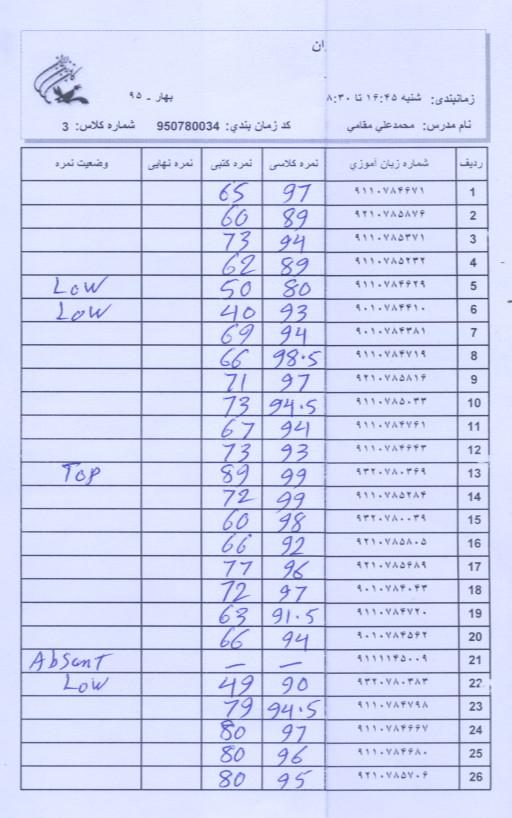 زمانبندی: شنبه ۱۶:۴۵ تا ۸:۳۰ بهار ـ ۹۵
نام مدرس: محمدعلي مقامي کد زمان بندي: 950780034 شماره کلاس: 3
ردیف شماره زبان آموزي نمره کلاسی نمره کتبی نمره نهایی وضعیت نمره
1 ۹۱۱۰۷۸۴۶۷۱ 97 65
2 ۹۲۱۰۷۸۵۸۷۶ 89 60
3 ۹۱۱۰۷۸۵۳۷۱ 94 73
4 ۹۱۱۰۷۸۵۲۳۲ 89 62
5 ۹۱۱۰۷۸۴۶۲۹ 80 50 Low
6 ۹۰۱۰۷۸۴۴۱۰ 93 40 Low
7 ۹۰۱۰۷۸۴۳۸۱ 94 69
8 ۹۱۱۰۷۸۴۷۱۹ 98.5 66
9 ۹۲۱۰۷۸۵۸۱۶ 97 71
10 ۹۱۱۰۷۸۵۰۳۳ 94.5 73
11 ۹۱۱۰۷۸۴۷۶۱ 94 67
12 ۹۱۱۰۷۸۴۶۴۳ 93 73
13 ۹۳۲۰۷۸۰۳۶۹ 99 89 Top
14 ۹۱۱۰۷۸۵۲۸۴ 99 72
15 ۹۳۲۰۷۸۰۰۳۹ 98 60
16 ۹۲۱۰۷۸۵۸۰۵ 92 66
17 ۹۲۱۰۷۸۵۶۸۹ 96 77
18 ۹۰۱۰۷۸۴۰۴۳ 97 72
19 ۹۱۱۰۷۸۴۷۲۰ 91.5 63
20 ۹۰۱۰۷۸۴۵۶۲ 94 66
21 ۹۱۱۱۱۴۵۰۰۹ – – Absent
22 ۹۳۲۰۷۸۰۳۸۳ 90 49 Low
23 ۹۱۱۰۷۸۴۷۹۸ 94.5 79
24 ۹۱۱۰۷۸۴۶۶۷ 97 80
25 ۹۱۱۰۷۸۴۶۸۰ 96 80
26 ۹۲۱۰۷۸۵۷۰۶ 95 80